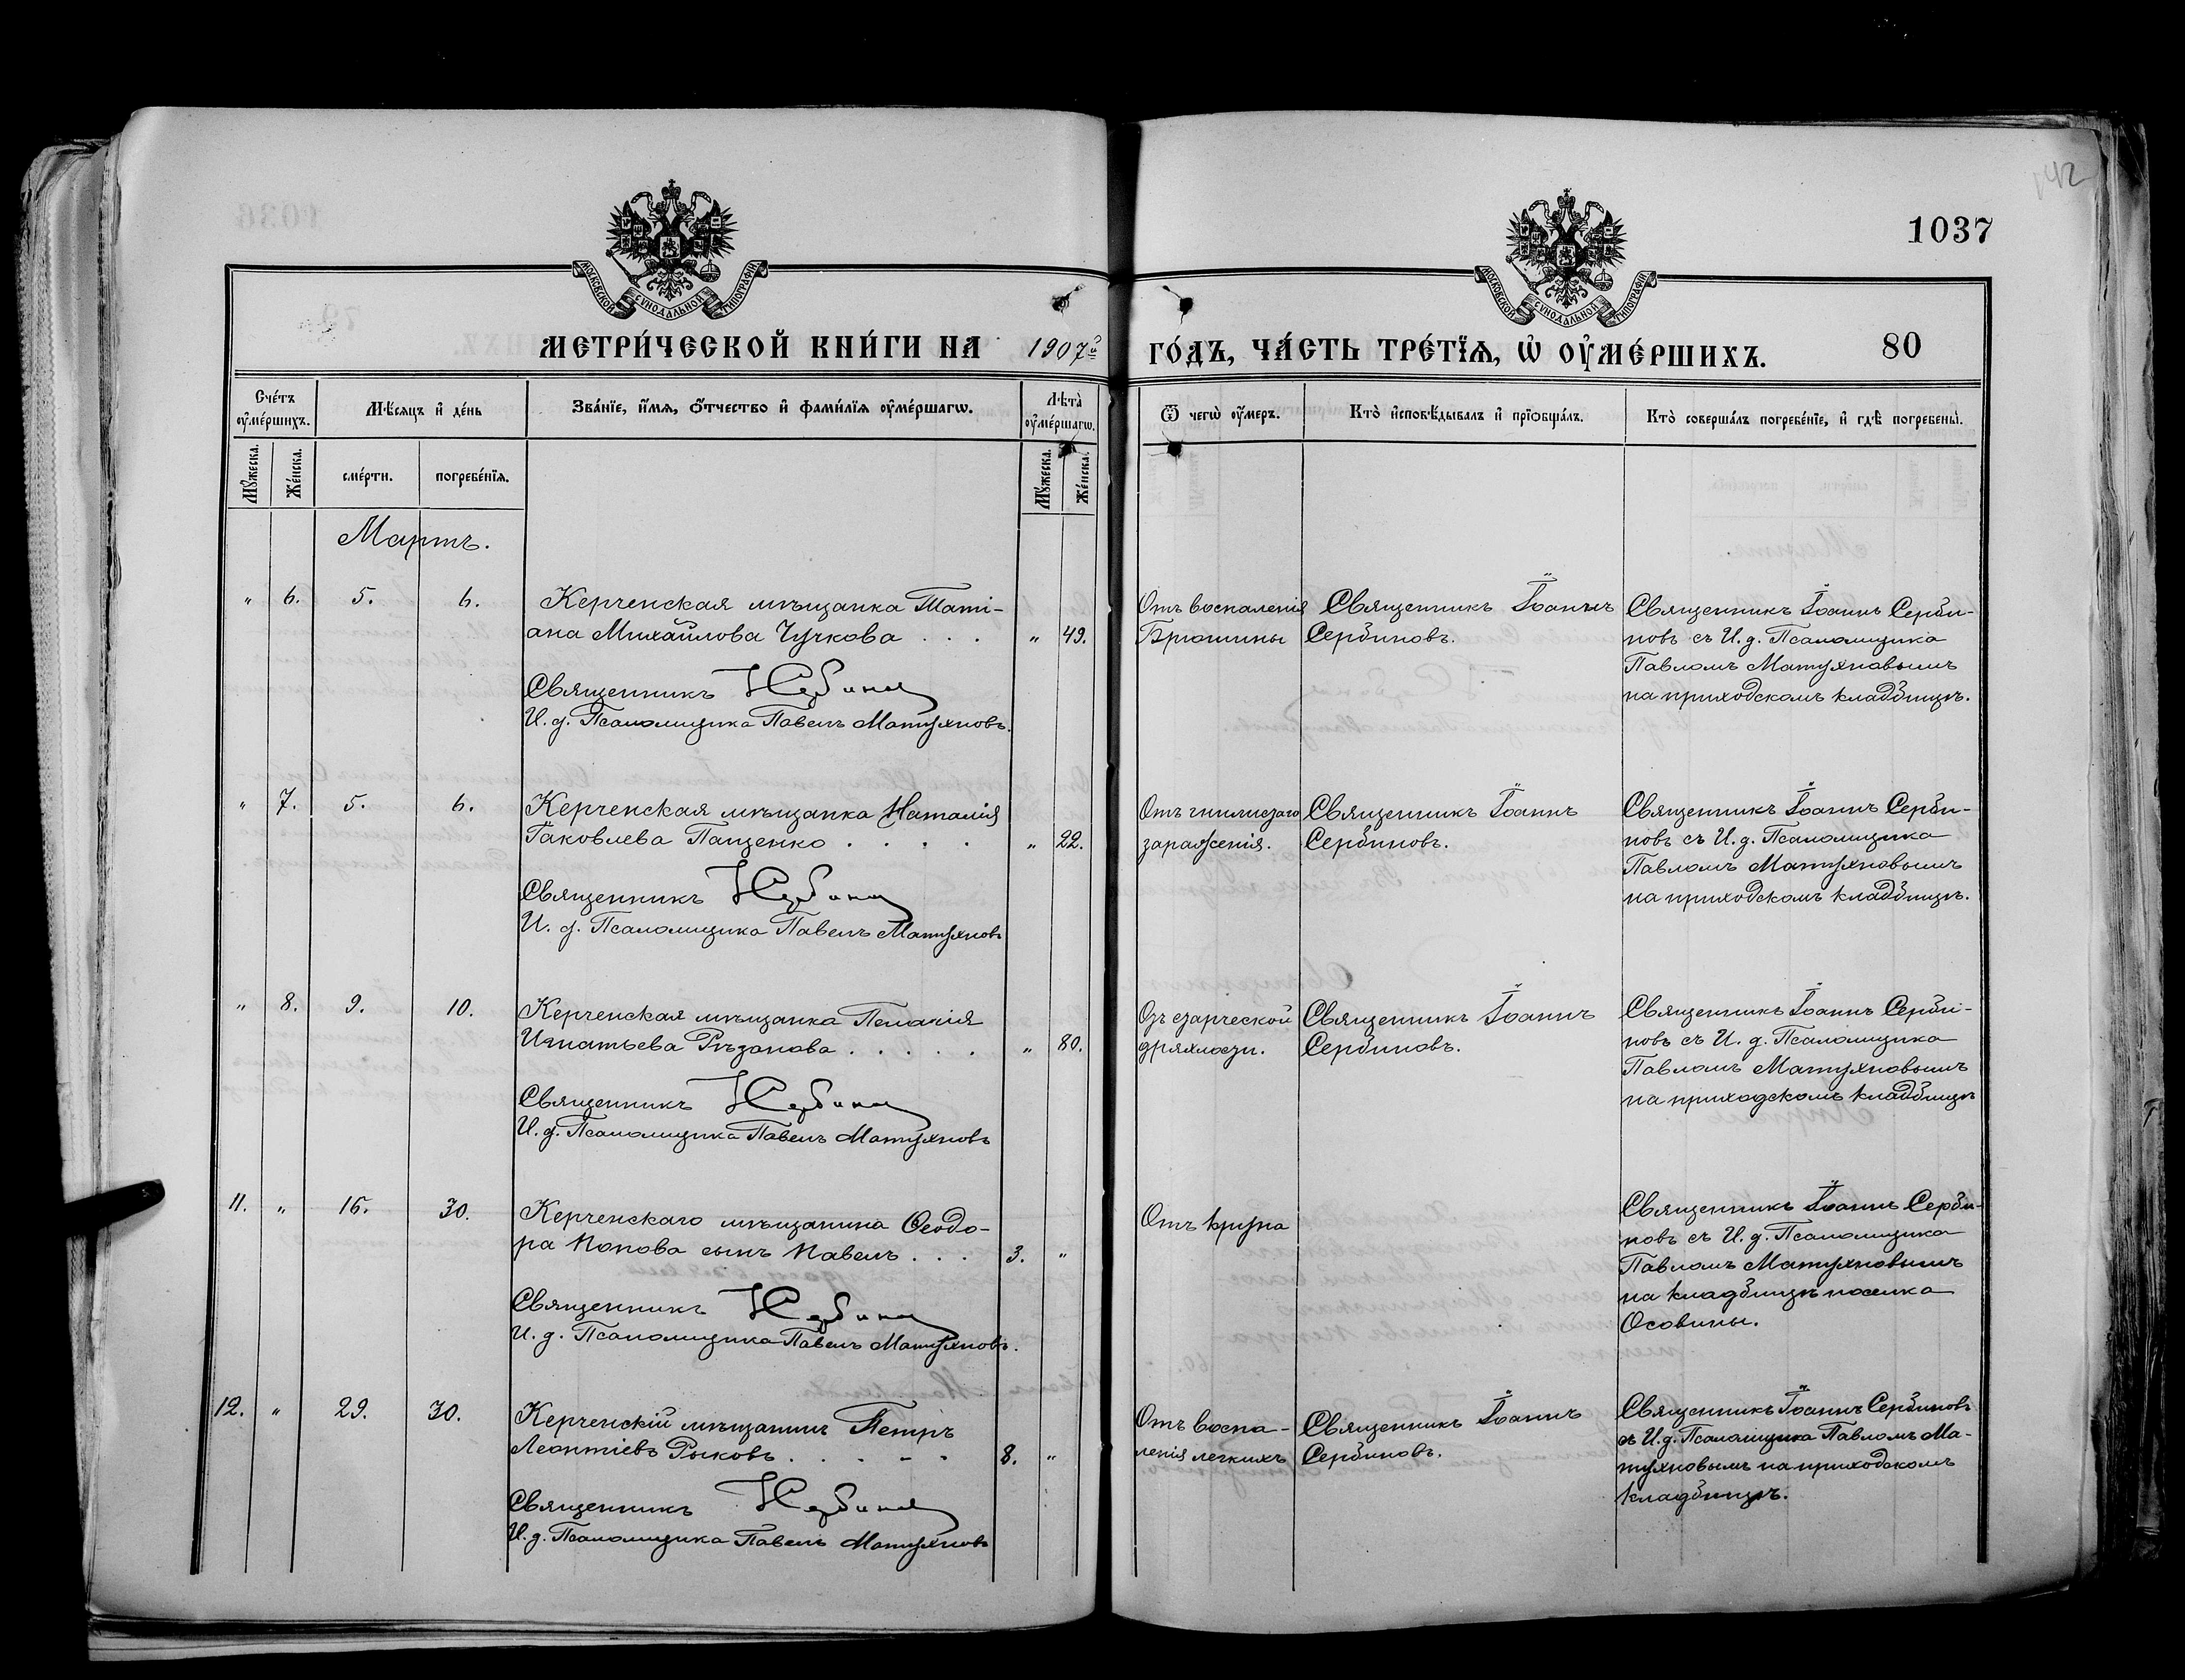 142
1037
МОСКОВСКОЙ СѴНОДАЛЬНОЙ ТИПОГРАФІИ
МОСКОВСКОЙ СѴНОДАЛЬНОЙ ТИПОГРАФІИ
МЕТРИ́ЧЕСКОЙ КНИ́ГИ НА 1907й ГО́ДЪ, ЧА́СТЬ ТРЕ́ТЇѦ, Ѡ҆ ОУ҆МЕ́РШИХЪ. 80
Сче́тъ оу҆ме́ршихъ.
Мѣ́сѧцъ и҆ де́нь
Зва́нїе, и҆́мѧ, ѻ҆́тчество и҆ фами́лїѧ оу҆ме́ршагѡ.
Лѣ́та̀ оу҆ме́ршагѡ.
Ѿ чегѡ̀ оу҆́меръ.
Кто̀ и҆сповѣ́дывалъ и҆ прїѻбща́лъ.
Кто̀ соверша́лъ погребе́нїе, и҆ гдѣ̀ погребены̀.
Мꙋ́жеска.
Же́нска.
сме́рти.
погребе́нїѧ.
Мꙋ́жеска.
Же́нска.
Мартъ.
" 6. 5. 6.
Керченская мѣщанка Тати-
ана Михайлова Чучкова . . . " 49.
Священникъ
И. д. Псаломщика Павелъ Матухновъ.
Отъ воспаленія
Брюшины
Священникъ Іоаннъ
Сербиновъ.
Священникъ Іоаннъ Серби-
новъ съ И. д. Псаломщика
Павломъ Матухновымъ
на приходскомъ кладбищѣ.
" 7. 5. 6.
Керченская мѣщанка Наталія
Іаковлева Пащенко . . . . " 22.
Священникъ
И. д. Псаломщика Павелъ Матухновъ
Отъ гнилизаго
зараженія.
Священникъ Іоаннъ
Сербиновъ.
Священникъ Іоаннъ Серби-
новъ съ И. д. Псаломщика
Павломъ Матухновымъ
на приходскомъ кладбищѣ.
" 8. 9. 10.
Керченская мѣщанка Пелагія
Игнатьева Рѣзанова . . . . . " 80.
Священникъ
И. д. Псаломщика Павелъ Матухновъ
Отъ старческой
дряхлости.
Священникъ Іоаннъ
Сербиновъ.
Священникъ Іоаннъ Серби-
новъ съ И. д. Псаломщика
Павломъ Матухновымъ
на приходскомъ кладбищѣ
11. " 16. 30.
Керченскаго мѣщанина Ѳеодо-
ра Попова сынъ Павелъ . . . 3. "
Священникъ
И. д. Псаломщика Павелъ Матухновъ.
Отъ крупа
Священникъ Іоаннъ Серби-
новъ съ И. д. Псаломщика
Павломъ Матухновымъ
на кладбищѣ поселка
Осовины.
12. " 29. 30.
Керченскій мѣщанинъ Петръ
Леонтіевъ Рыковъ . . . . . 8. "
Священникъ
И. д. Псаломщика Павелъ Матухновъ
Отъ воспа-
ленія легкихъ
Священникъ Іоаннъ
Сербиновъ.
Священникъ Іоаннъ Сербиновъ
съ И. д. Псаломщика Павломъ Ма-
тухновымъ на приходскомъ
кладбищѣ.